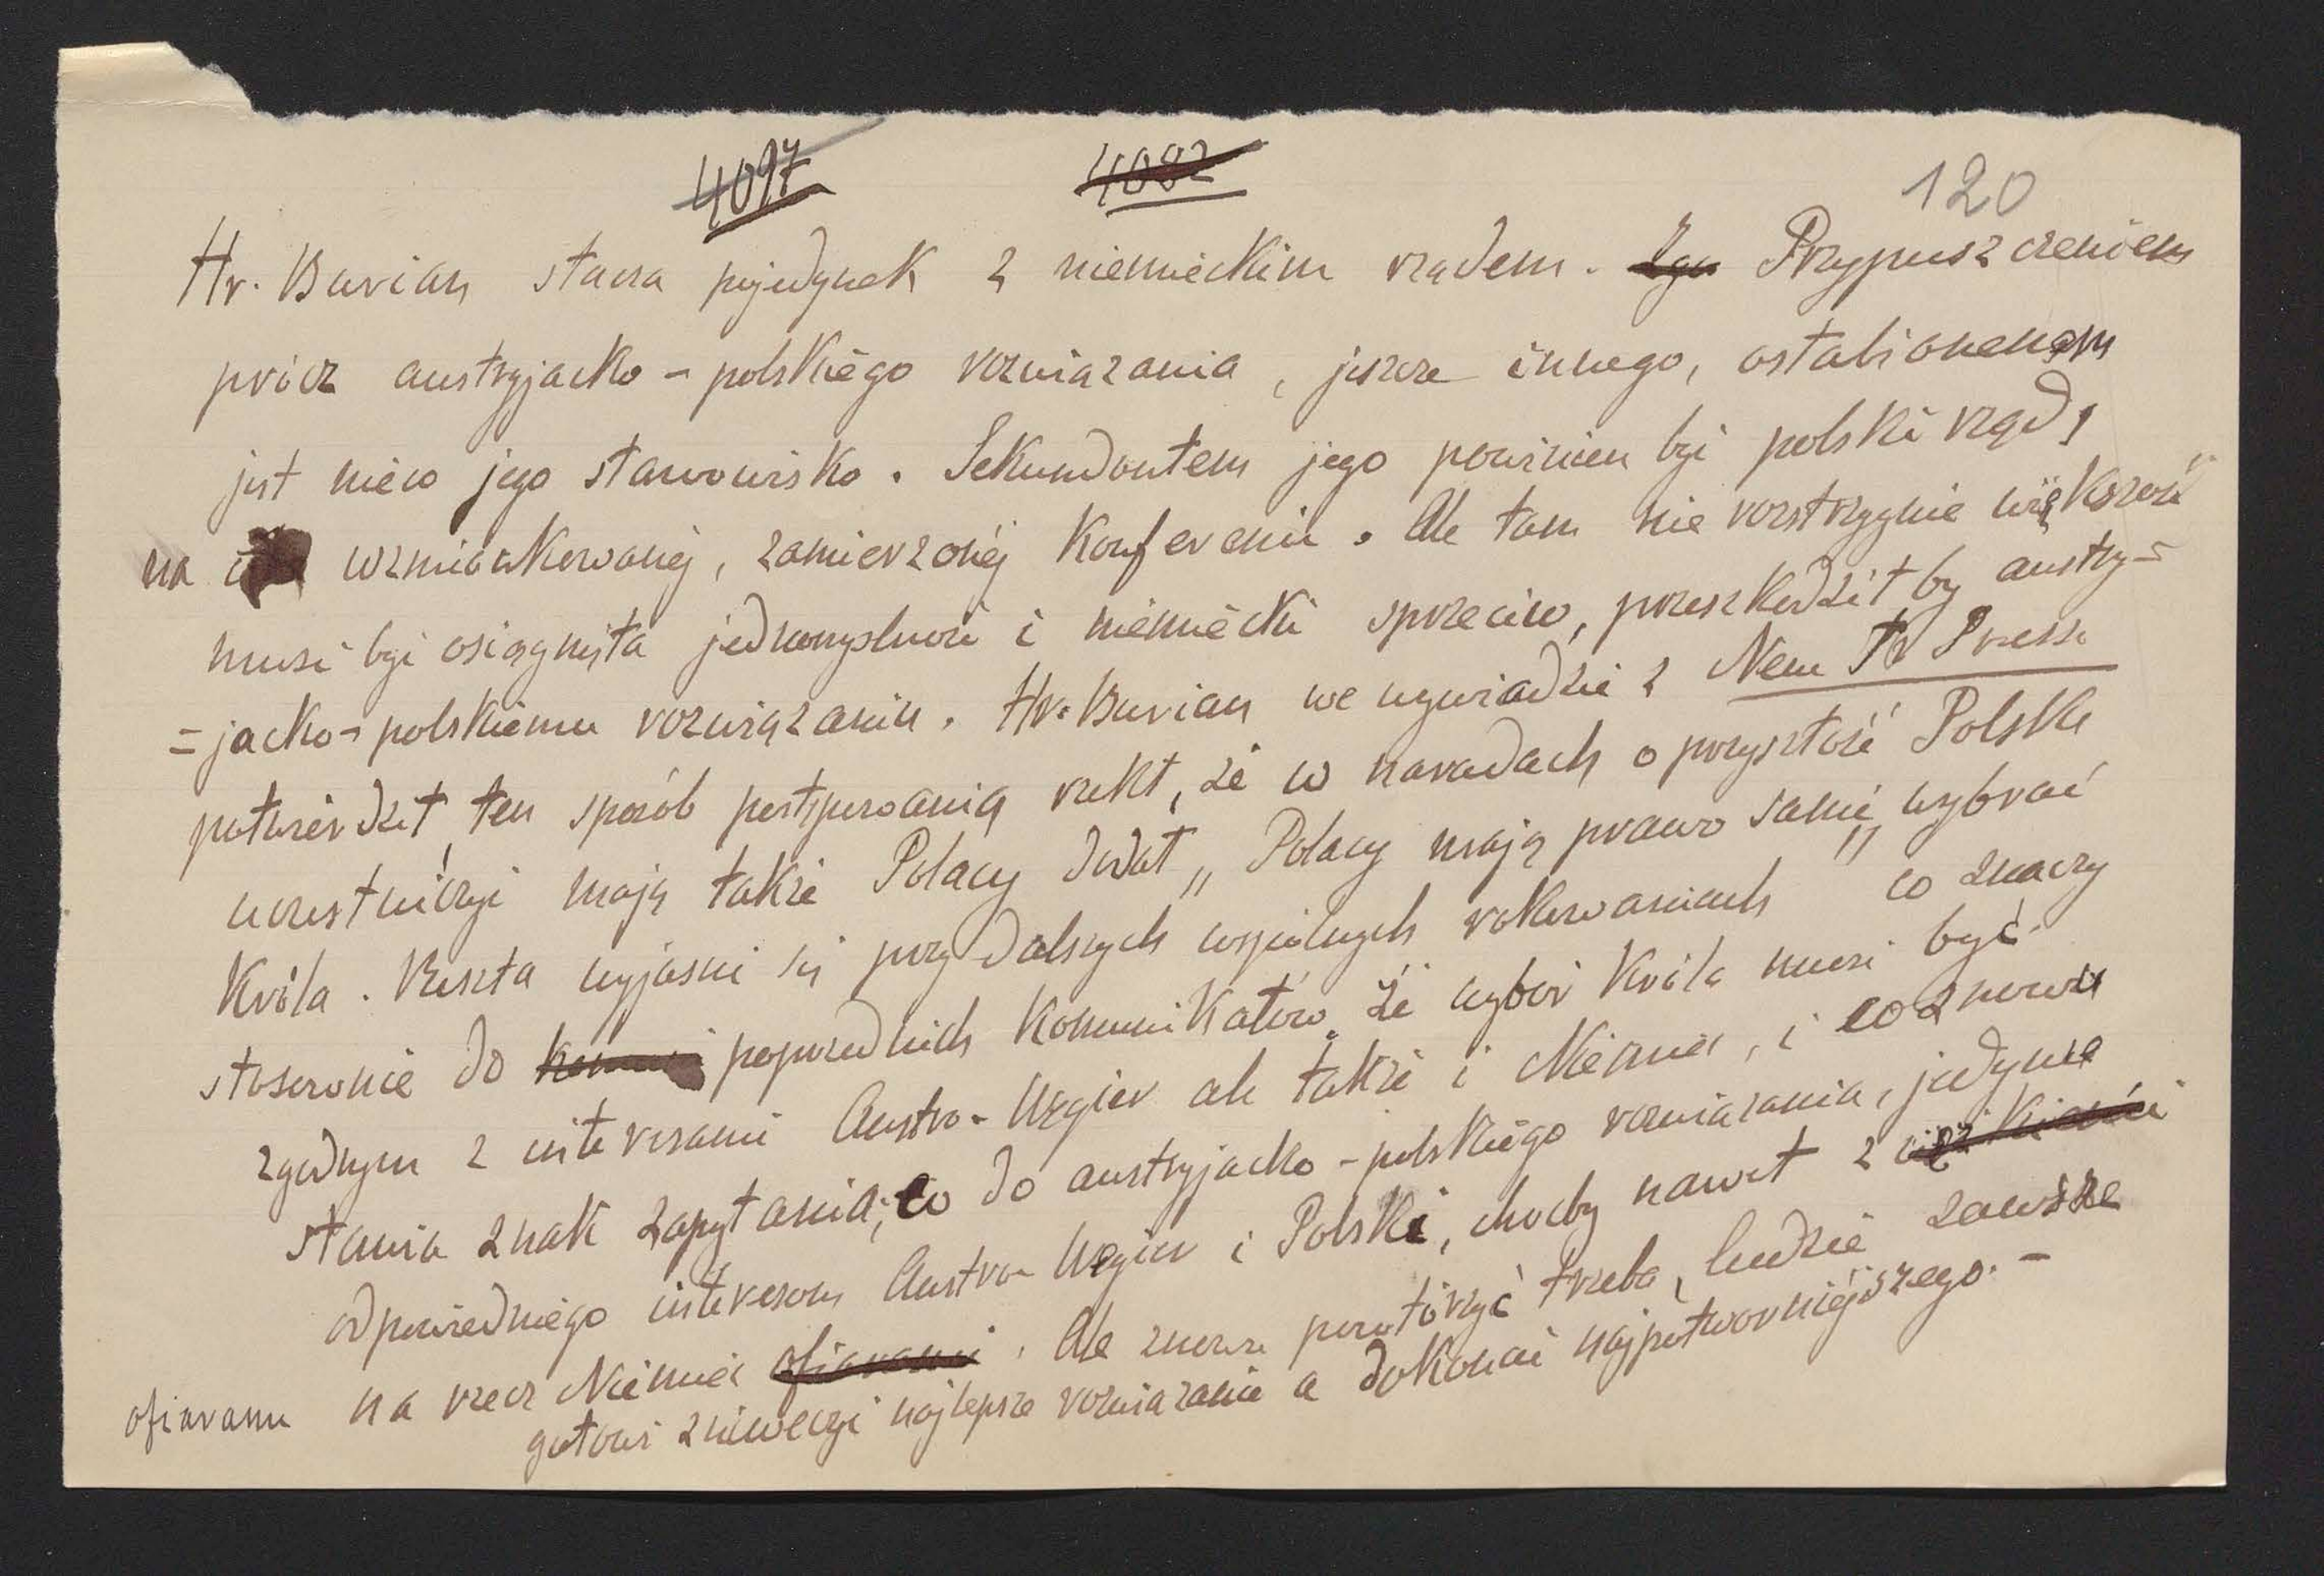 4097 4082 120
Hr. Burian stacza pojedynek z niemieckim rządem. Przypuszczeniem
prócz austryjacko-polskiego rozwiązania, jeszcze innego, osłabionenem
jest nieco jego stanowisko. Sekundantem jego powinien być polski rząd,
na wzmiankowanéj, zamierzonéj Konferencii. Ale tam nie rozstrzygnie większość
musi być osiągnięta jednomyslność i niemiecki sprzeciw, przeszkodził by austry=
=jacko-polskiemu rozwiązaniu. Hr. Burian we wywiadzie z Neue Fr Presse
potwierdził, ten sposób postępowania, rzekł, że w naradach o przyszłość Polski
uczestniczyć mają także Polacy dodał „Polacy mają prawo sami wybrać
Króla. Reszta wyjaśni się przy dalszych wspólnych rokowaniach" co znaczy
stosownie do poprzednich Komunikatów, że wybór Króla musi być
zgodnym z interesami Austro-Węgier ale także i Niemiec, i co znowu
stawia znak zapytania, co do austryjacko-polskiego rozwiązania, jedynie
odpowiedniego interesom Austro-Węgier i Polski, choćby nawet z
ofiarami na rzecz Niemiec ofiarami. Ale znowu powtórzyć trzeba, ludzie zawsze
gotowi zniweczyć najlepsze rozwiązanie a dokonać najpotworniéjszego. -